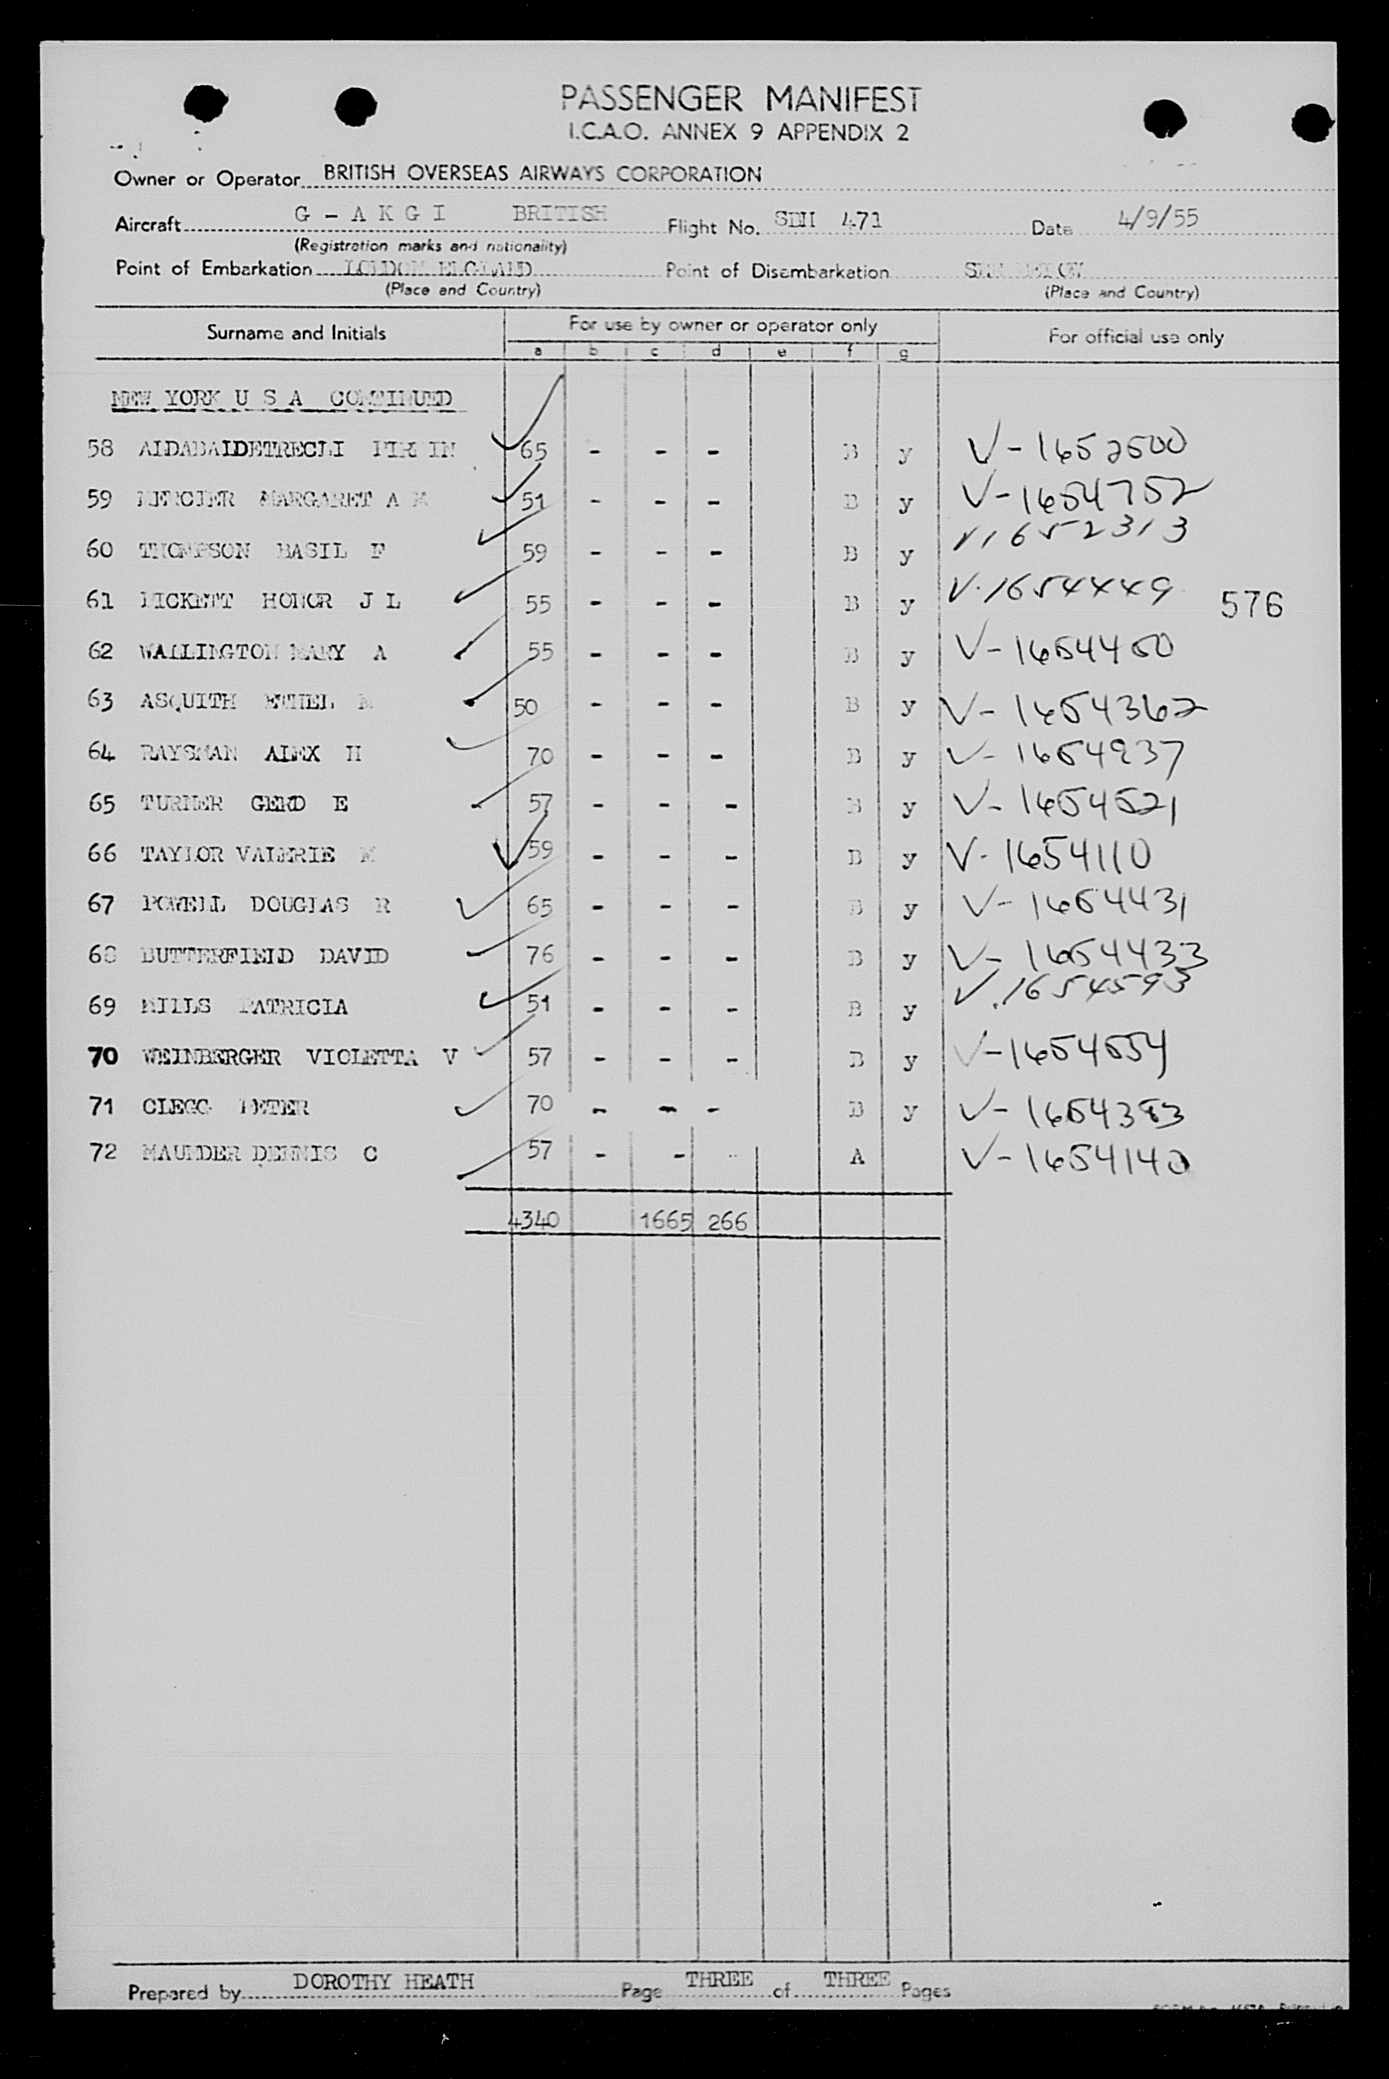 PASSENGER MANIFEST
I.C.A.O. ANNEX 9 APPENDIX 2
Owner or Operator BRITISH OVERSEAS AIRWAYS CORPORATION
Aircraft G - A K G I BRITISH Flight No. 471 Date 4/9/55
(Registration marks and nationality)
Point of Embarkation LONDON ENGLAND Point of Disembarkation SEE BELOW
(Place and Country) (Place and Country)
Surname and Initials For use by owner or operator only For official use only
a b c d e f g
NEW YORK U S A CONTINUED
58 65 - - - B y V-1652500
59 MERCIER MARGARET A M 51 - - - B y V-1654752
60 THOMPSON BASIL F 59 - - - B y V1652313
61 HONOR J L 55 - - - B y V-1654449 576
62 WALLINGTON MARY A 55 - - - B y V-1654450
63 ASQUITH ETHEL M 50 - - - B y V-1654362
64 RAYSMAN ALEX H 70 - - - B y V-1654937
65 TURNER GERD E 57 - - - B y V-1654521
66 TAYLOR VALERIE M 59 - - - B y V-1654110
67 POWELL DOUGLAS R 65 - - - B y V-1654431
68 BUTTERFIELD DAVID 76 - - - B y V-1654433
69 MILLS PATRICIA 51 - - - B y V.1654593
70 WEINBERGER VIOLETTA V 57 - - - B y V-1654554
71 CLEGG PETER 70 - - - B y V-1654383
72 MAUNDER DENNIS C 57 - - - A V-1654140
4340 1665 266
Prepared by DOROTHY HEATH Page THREE of THREE Pages